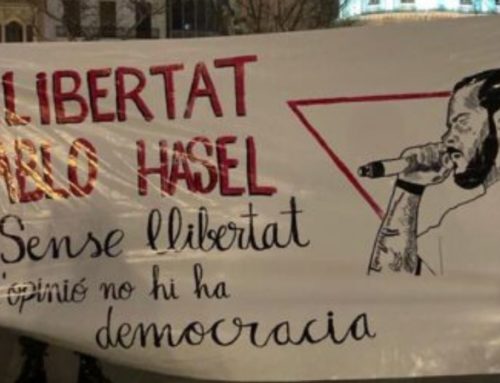 LIBERTAT
ABLO HASEL
Sense llibertat
'opinió no hi ha
democracia